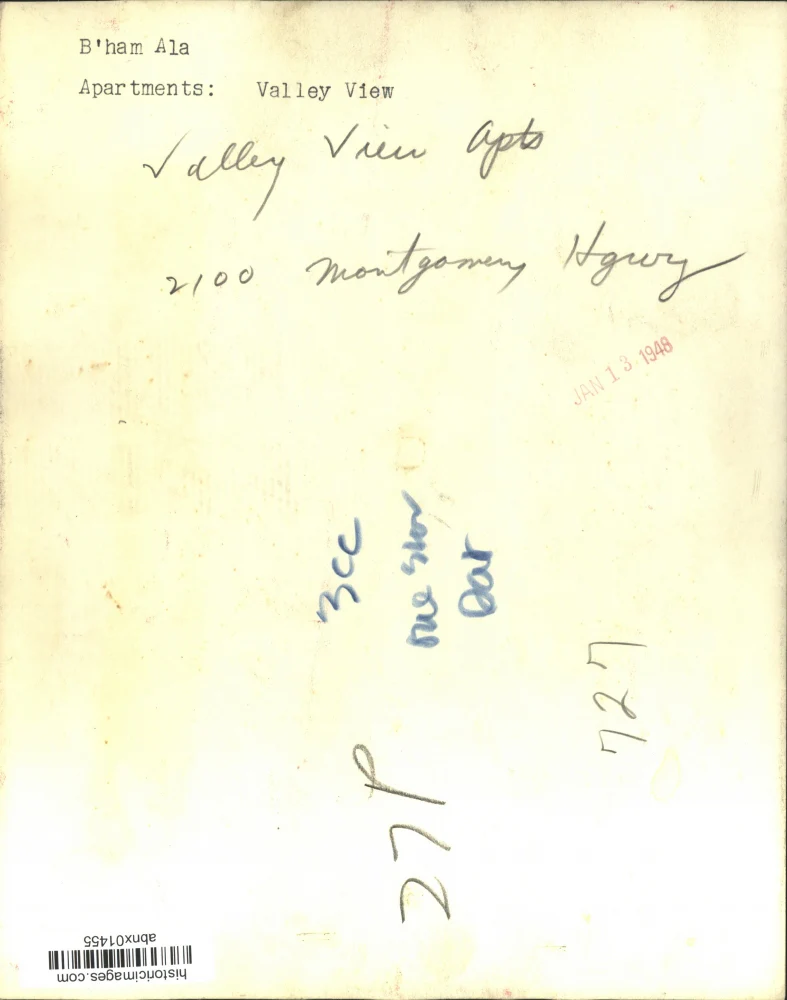 B'ham Ala
Apartments: Valley View
Valley View Apts
2100 Montgomery Hgwy
JAN 13 1948
3cc
one
Dar
727
27P
historicimages.com
abnx01455